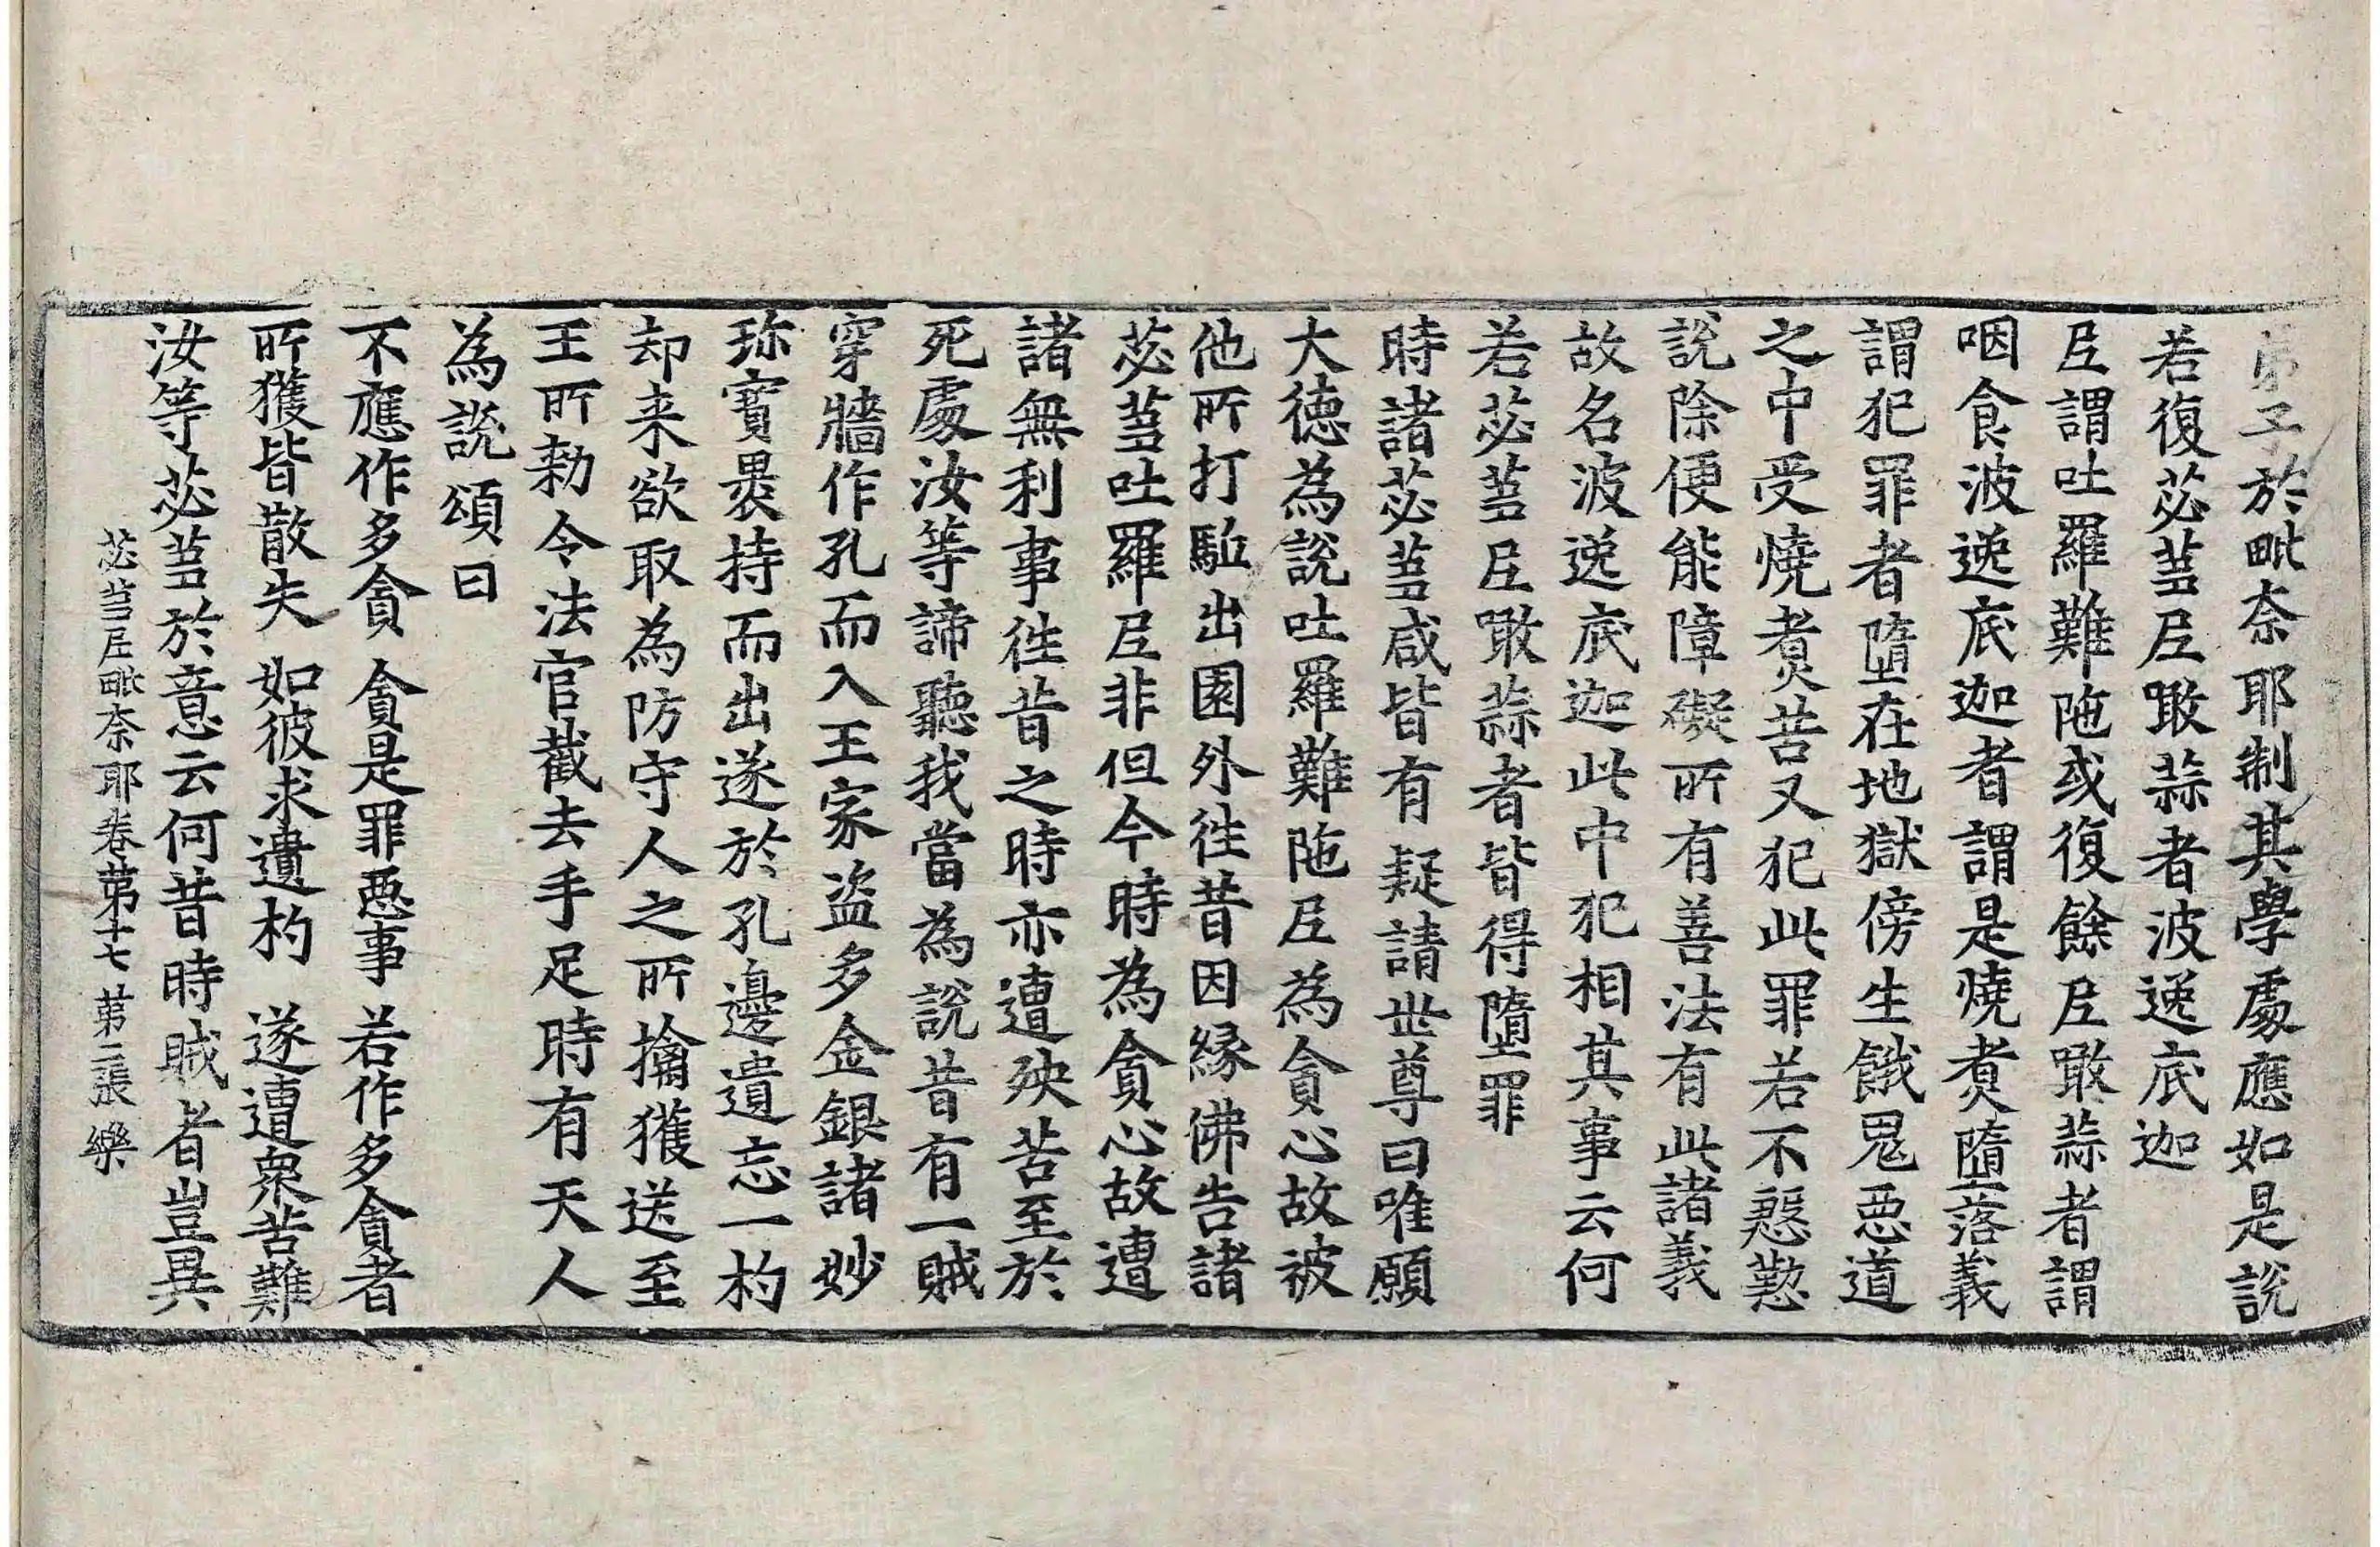 弟子於毗奈耶制其學處應如是說
若復苾芻尼噉蒜者波逸底迦
尼謂吐羅難陁或復餘尼噉蒜者謂
咽食波逸底迦者謂是燒煑墮落義
謂犯罪者墮在地獄傍生餓鬼惡道
之中受燒煑苦又犯此罪若不慇懃
說除便能障礙所有善法有此諸義
故名波逸底迦此中犯相其事云何
若苾芻尼噉蒜者皆得墮罪
時諸苾芻咸皆有疑請世尊曰唯願
大德為說吐羅難陁尼為貪心故被
他所打驅出園外徃昔因緣佛告諸
苾芻吐羅尼非但今時為貪心故遭
諸無利事徃昔之時亦遭殃苦至於
死處汝等諦聽我當為說昔有一賊
穿牆作孔而入王家盜多金銀諸妙
珎寶褁持而出遂於孔邊遺忘一杓
却来欲取為防守人之所擒獲送至
王所勑令法官截去手足時有天人
為說頌曰
不應作多貪 貪是罪惡事 若作多貪者
所獲皆散失 如彼求遺杓 遂遭衆苦難
汝等苾芻於意云何昔時賊者豈異
苾芻尼毗奈耶卷第十七 第二張 樂